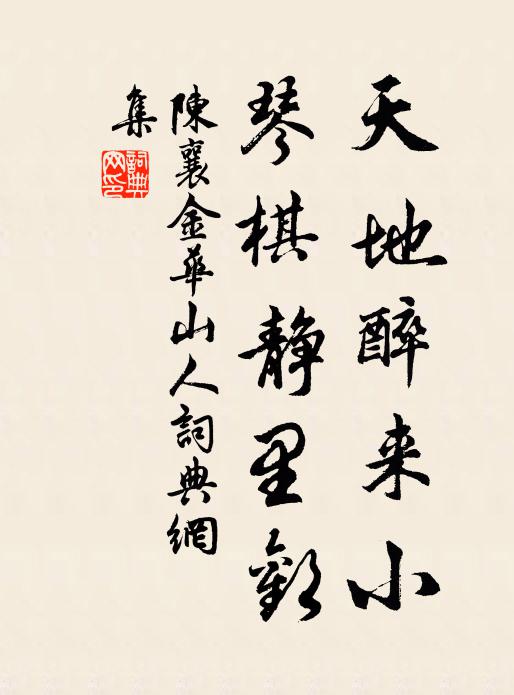 天地醉来小
琴棋静里歡
陳襄金華山人詞典網
集
詞典
网印